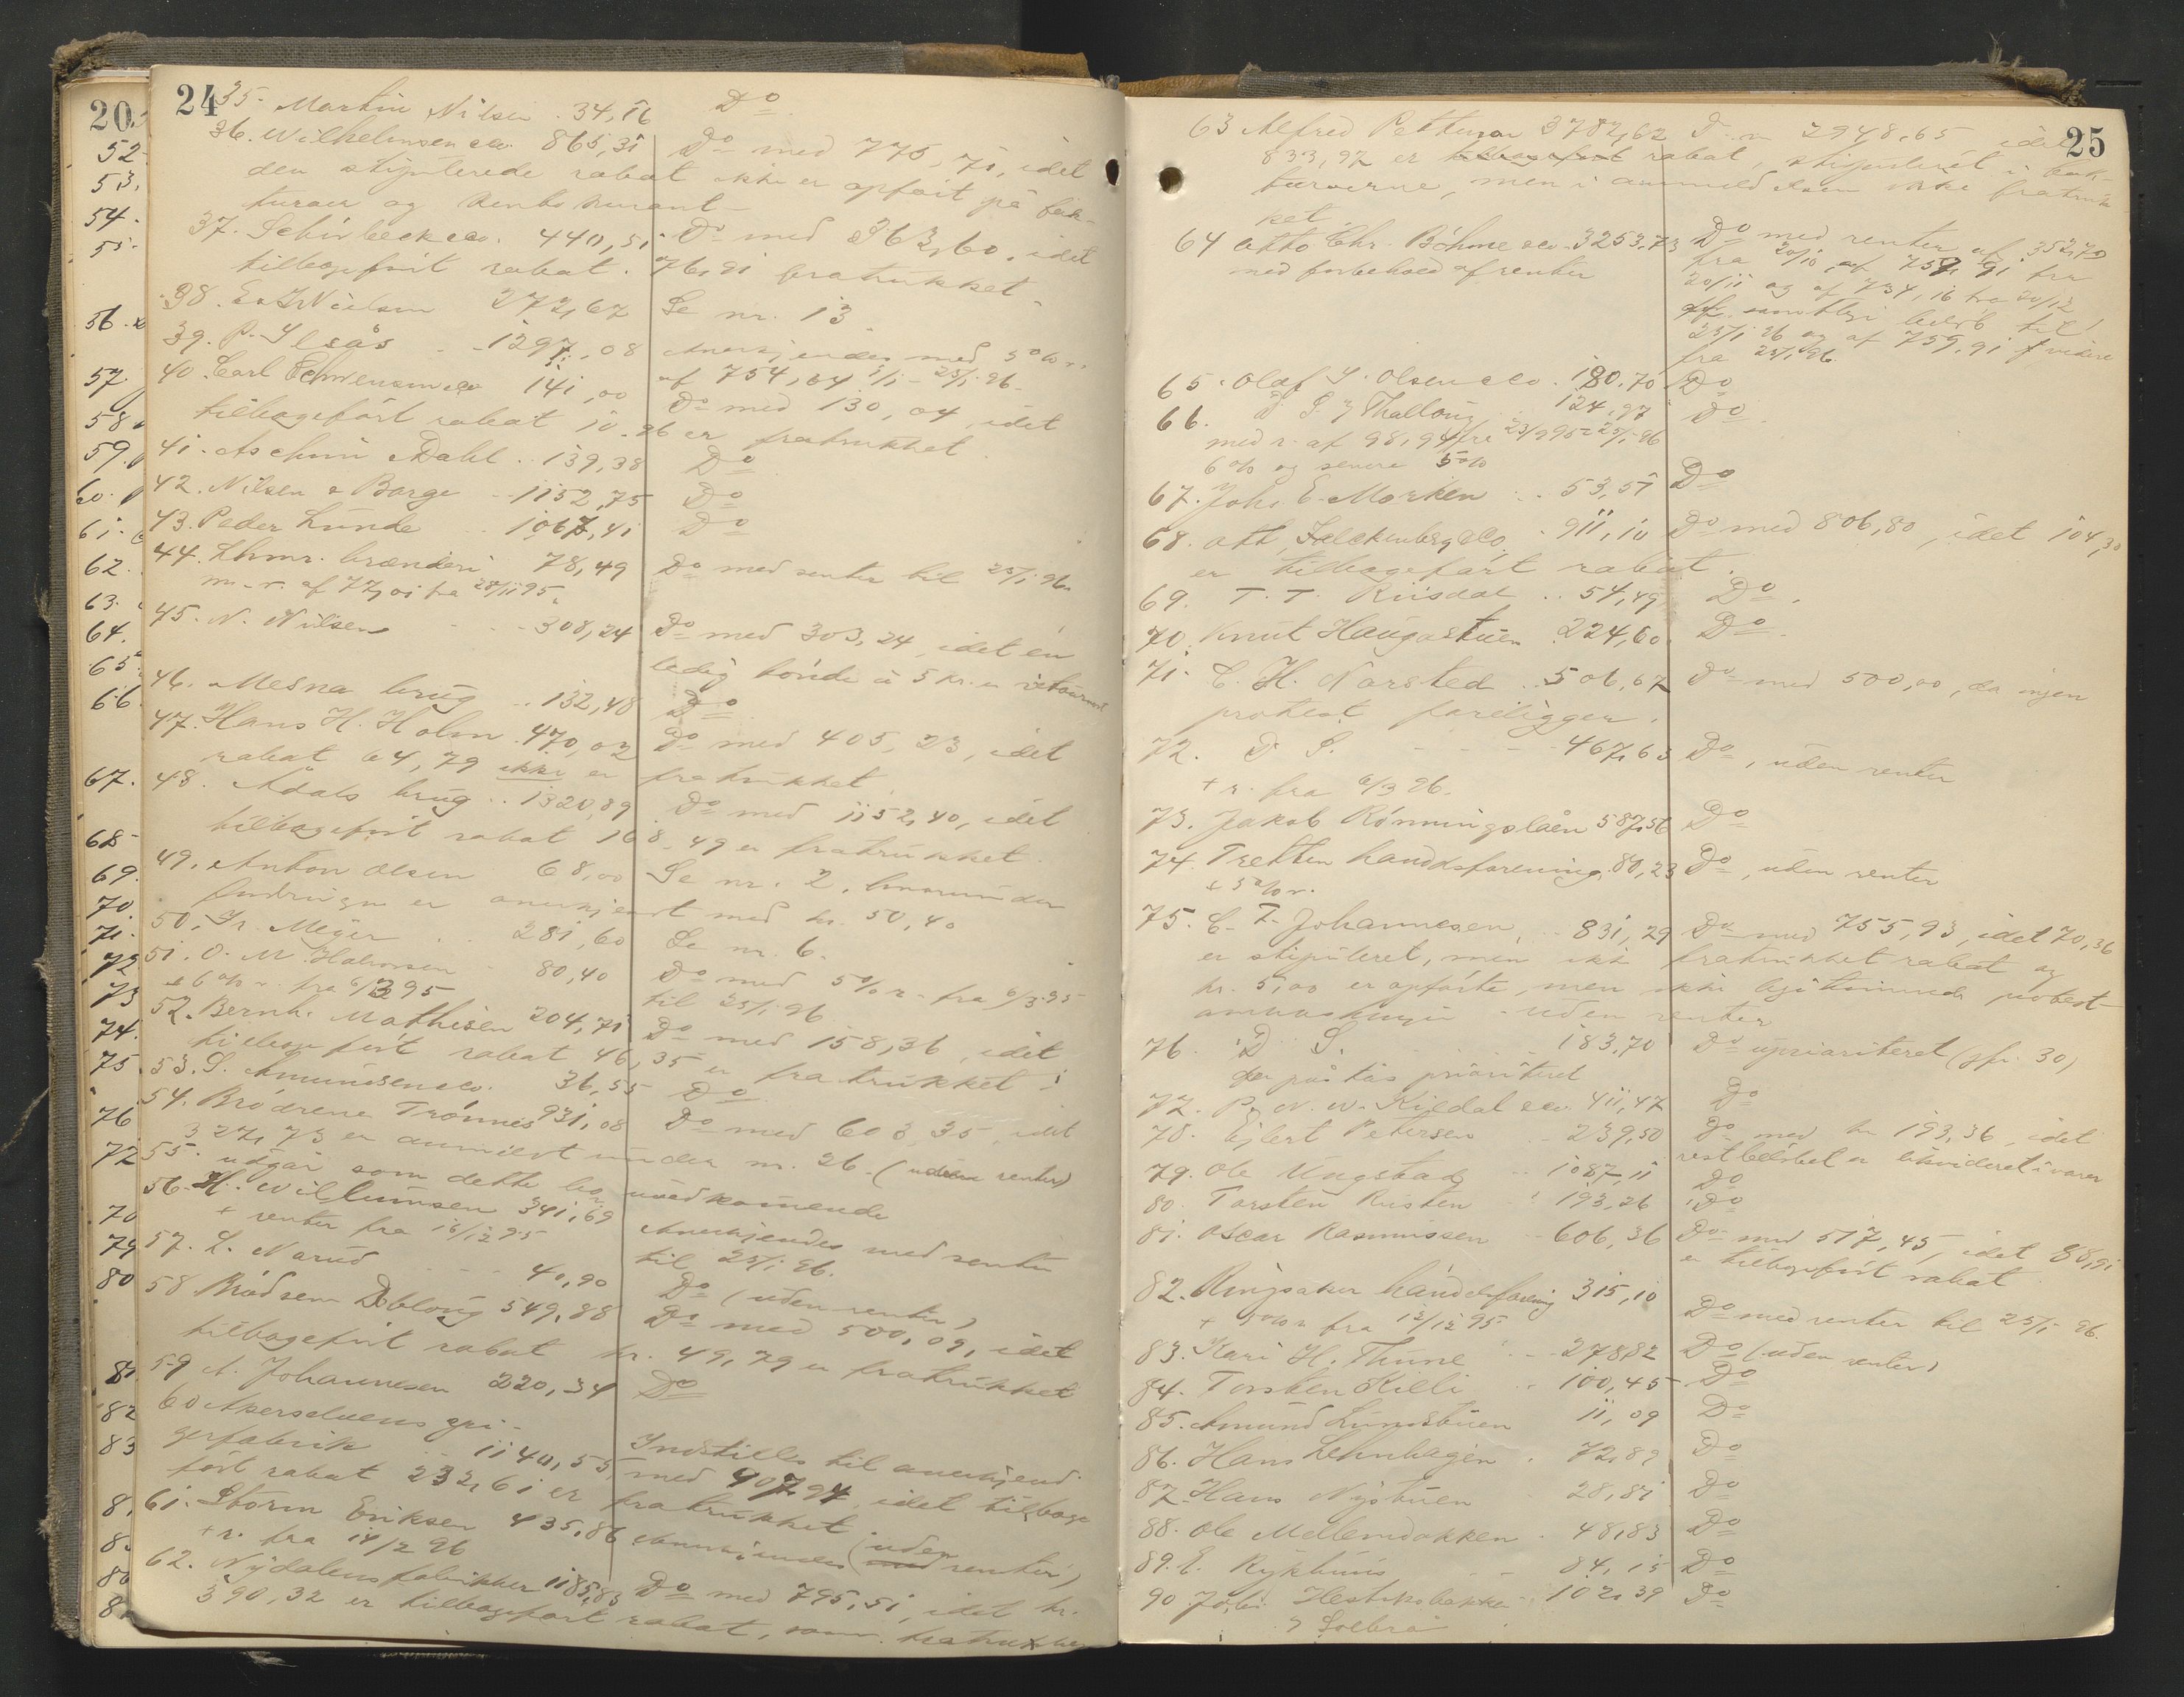 24
35. Martin Nilsen . 34,16 Do
36. Wilhelmsen & Co. 865,31 Do med 775,71, idet
den stipulerede rabat ikke er opført på fak-
turaer og kontokurant
37. Schivbeck & Co. 440,51 Do med 363,60, idet
tilbageført rabat 76,91 fratrukket.
38. E. & J. Nielsen 272,67 Se nr. 13
39. P. Ilsås 1297,08 Anerkjendes med 5% r.
af 754,64 - 25/1 96.
40. Carl & Co 141,00 Do med 130,04, idet
tilbageført rabat 10.96 er fratrukket
41. Aschim Dahl .. 139,38 Do
42. Nilsen & Borge .. 1152,75 Do
43. Peder Lunde . 1067,41 Do
44. Lhmr. brænderi 78,49 Do med renter til 25/1 96.
m. r. af 77,01 fra 28/11 95.
45. N. Nielsen 308,24 Do med 303,24, idet en
ledig tønde à 5 kr. er retourneret
46. Mesna brug .. 132,48 Do
47. Hans H. Holm 470,02 Do med 405,23, idet
rabat 64,79 ikke er fratrukket
48. Ådals brug .. 1320,89 Do med 1152,40, idet
tilbageført rabat 168,49 er fratrukket.
49. Anton Olsen 68,00 Se nr. 2, hvorunder
fordringen er anerkjendt med kr. 50,40
50. Fr. Meyer .. 281,60 Se nr. 6.
51. O. M. Halvorsen . 80,40 Do med 5% r. fra 6/3 95
+ 6% r. fra 6/3 95 til 25/1 96
52. Bernh. Mathisen 204,71 Do med 158,36, idet
tilbageført rabat 46,35 er fratrukket
53. S. Amundsen & Co. 36,55 Do
54. Brødrene Trønnes 931,08 Do med 603,35, idet
327,73 er anmeldt under nr. 26. (uden renter)
55. udgår som dette bo uvedkomende
56. H. Willumsen 341,69 Anerkjendes med renter
+ renter fra 16/12 95 til 25/1 96.
57. L. Narud 40,90 Do (uden renter)
58 Brødrene Dobloug 549,88 Do med 500,09, idet
tilbageført rabat kr. 49,79 er fratrukket
59 A. Johannesen 220,34 Do
60 Akerselvens spi-
gerfabrik .. 1140,55 Indstilles til anerkjend.
med 907,94, idet tilbage
ført rabat 232,61 er fratrukket
61. Storm Eriksen 435,86 Anerkjendes (uden renter)
+ r. fra 14/2 96
62. Nydalens fabrikker 1185,83 Do med 795,51, idet kr.
390,32 er tilbageført rabat, som fratrukket
25
63 Alfred Pettersen 3782,62 Do m 2948,65 idet
833,97 er tilbageført rabat, stipuleret i fak-
turaerne, men i anmeldelsen ikke fratruk-
ket
64 Otto Chr. Böhme & Co. 3253,73 Do med renter af 352,70
med forbehold af renter fra 20/10, af 759,91 fra
20/11 og af 734,16 fra 20/12
alt samtlige beløb til
25/1 96 og af 759,91 videre
fra 25/1 96.
65. Olaf T. Olsen & Co. 180,70 Do
66. D. S. J. Thalloug 124,97 Do
med r. af 98,94 fra 23/9 95 - 25/1 96
6% og senere 5%
67. Johs. E. Morken .. 53,51 Do
68. Ott. Falckenberg & Co. . 911,10 Do med 806,80, idet 104,30
er tilbageført rabat.
69. T. T. Ruisdal .. 54,49 Do
70. Knut Haugastuen 224,60 Do
71. C. H. Narsted .. 506,67 Do med 500,00, da ingen
protest foreligger.
72. D. S. 467,63 Do, uden renter
+ r. fra 6/3 96.
73. Jakob Rønningslåen 587,56 Do
74. Tretten handelsforening. 80,23 Do, uden renter
+ 5% r.
75. C. T. Johannesen .. 831,29 Do med 755,93, idet 70,36
er stipuleret, men ikke fratrukket rabat og
kr. 5,00 er opførte, men ikke legitimerede protest
omkostninger - uden renter
76. D. S. 183,70 Do uprioriteret (jfr. 30)
der påstås prioriteret
77. P. N. W. Kildal & Co. 411,47 Do
78. Ejlert Petersen .. 239,50 Do med kr 193,36, idet
restbeløbet er likvideret i varer
79. Ole Ungstad .. 1087,11 Do
80. Torsten Rusten .. 193,26 Do
81. Oscar Rasmussen .. 606,36 Do med 517,45, idet 88,91
er tilbageført rabat
82. Ringsaker handelsforening 315,10 Do med renter til 25/1 96.
+ 5% r. fra 12/12 95
83. Kari H. Thune .. 278,82 Do (uden renter)
84. Torsten Killi .. 100,45 Do
85. Amund Lundstuen 11,09 Do
86. Hans Lehnhagen . 72,89 Do
87. Hans Nystuen 28,81 Do
88. Ole Mellemdokken . 48,83 Do
89. E. Rykhus .. 84,15 Do
90 Johs. Hestekobakken . 102,39 Do
i Solbrå
20
52
53.
54.
55.
56.
57
58
59.
60.
61.
62.
63.
64.
65
66
67.
68
69.
70.
71.
72
73
74.
75
76
77
78
79
80
81
82
83